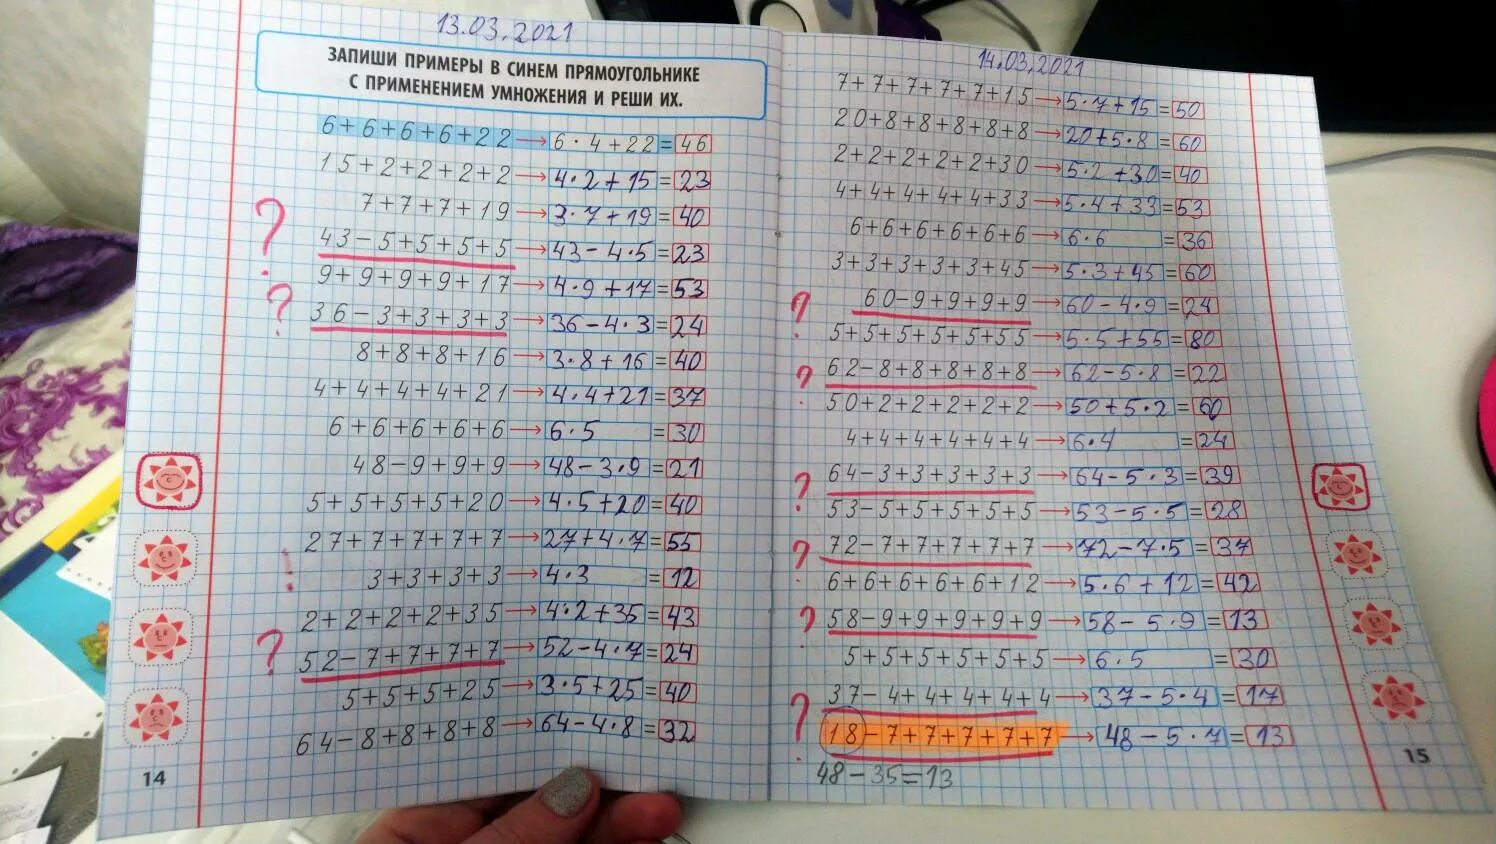 13.03.2021
ЗАПИШИ ПРИМЕРЫ В СИНЕМ ПРЯМОУГОЛЬНИКЕ
С ПРИМЕНЕНИЕМ УМНОЖЕНИЯ И РЕШИ ИХ.
6+6+6+6+22→6·4+22=46
15+2+2+2+2→4·2+15=23
7+7+7+19→3·7+19=40
? 43-5+5+5+5→43-4·5=23
9+9+9+9+17→4·9+17=53
? 36-3+3+3+3→36-4·3=24
8+8+8+16→3·8+16=40
4+4+4+4+21→4·4+21=37
6+6+6+6+6→6·5=30
48-9+9+9→48-3·9=21
5+5+5+5+20→4·5+20=40
27+7+7+7+7→27+4·7=55
! 3+3+3+3→4·3=12
2+2+2+2+35→4·2+35=43
? 52-7+7+7+7→52-4·7=24
5+5+5+25→3·5+25=40
64-8+8+8+8→64-4·8=32
14
14.03.2021
7+7+7+7+7+15→5·7+15=50
20+8+8+8+8+8→20+5·8=60
2+2+2+2+2+30→5·2+30=40
4+4+4+4+4+33→5·4+33=53
6+6+6+6+6+6→6·6=36
3+3+3+3+3+45→5·3+45=60
? 60-9+9+9+9→60-4·9=24
5+5+5+5+5+55→5·5+55=80
? 62-8+8+8+8+8→62-5·8=22
50+2+2+2+2+2→50+5·2=60
4+4+4+4+4+4→6·4=24
? 64-3+3+3+3+3→64-5·3=39
53-5+5+5+5+5→53-5·5=28
? 72-7+7+7+7+7→72-7·5=37
6+6+6+6+6+12→5·6+12=42
? 58-9+9+9+9+9→58-5·9=13
5+5+5+5+5+5→6·5=30
? 37-4+4+4+4+4→37-5·4=17
18-7+7+7+7+7→48-5·7=13
48-35=13
15